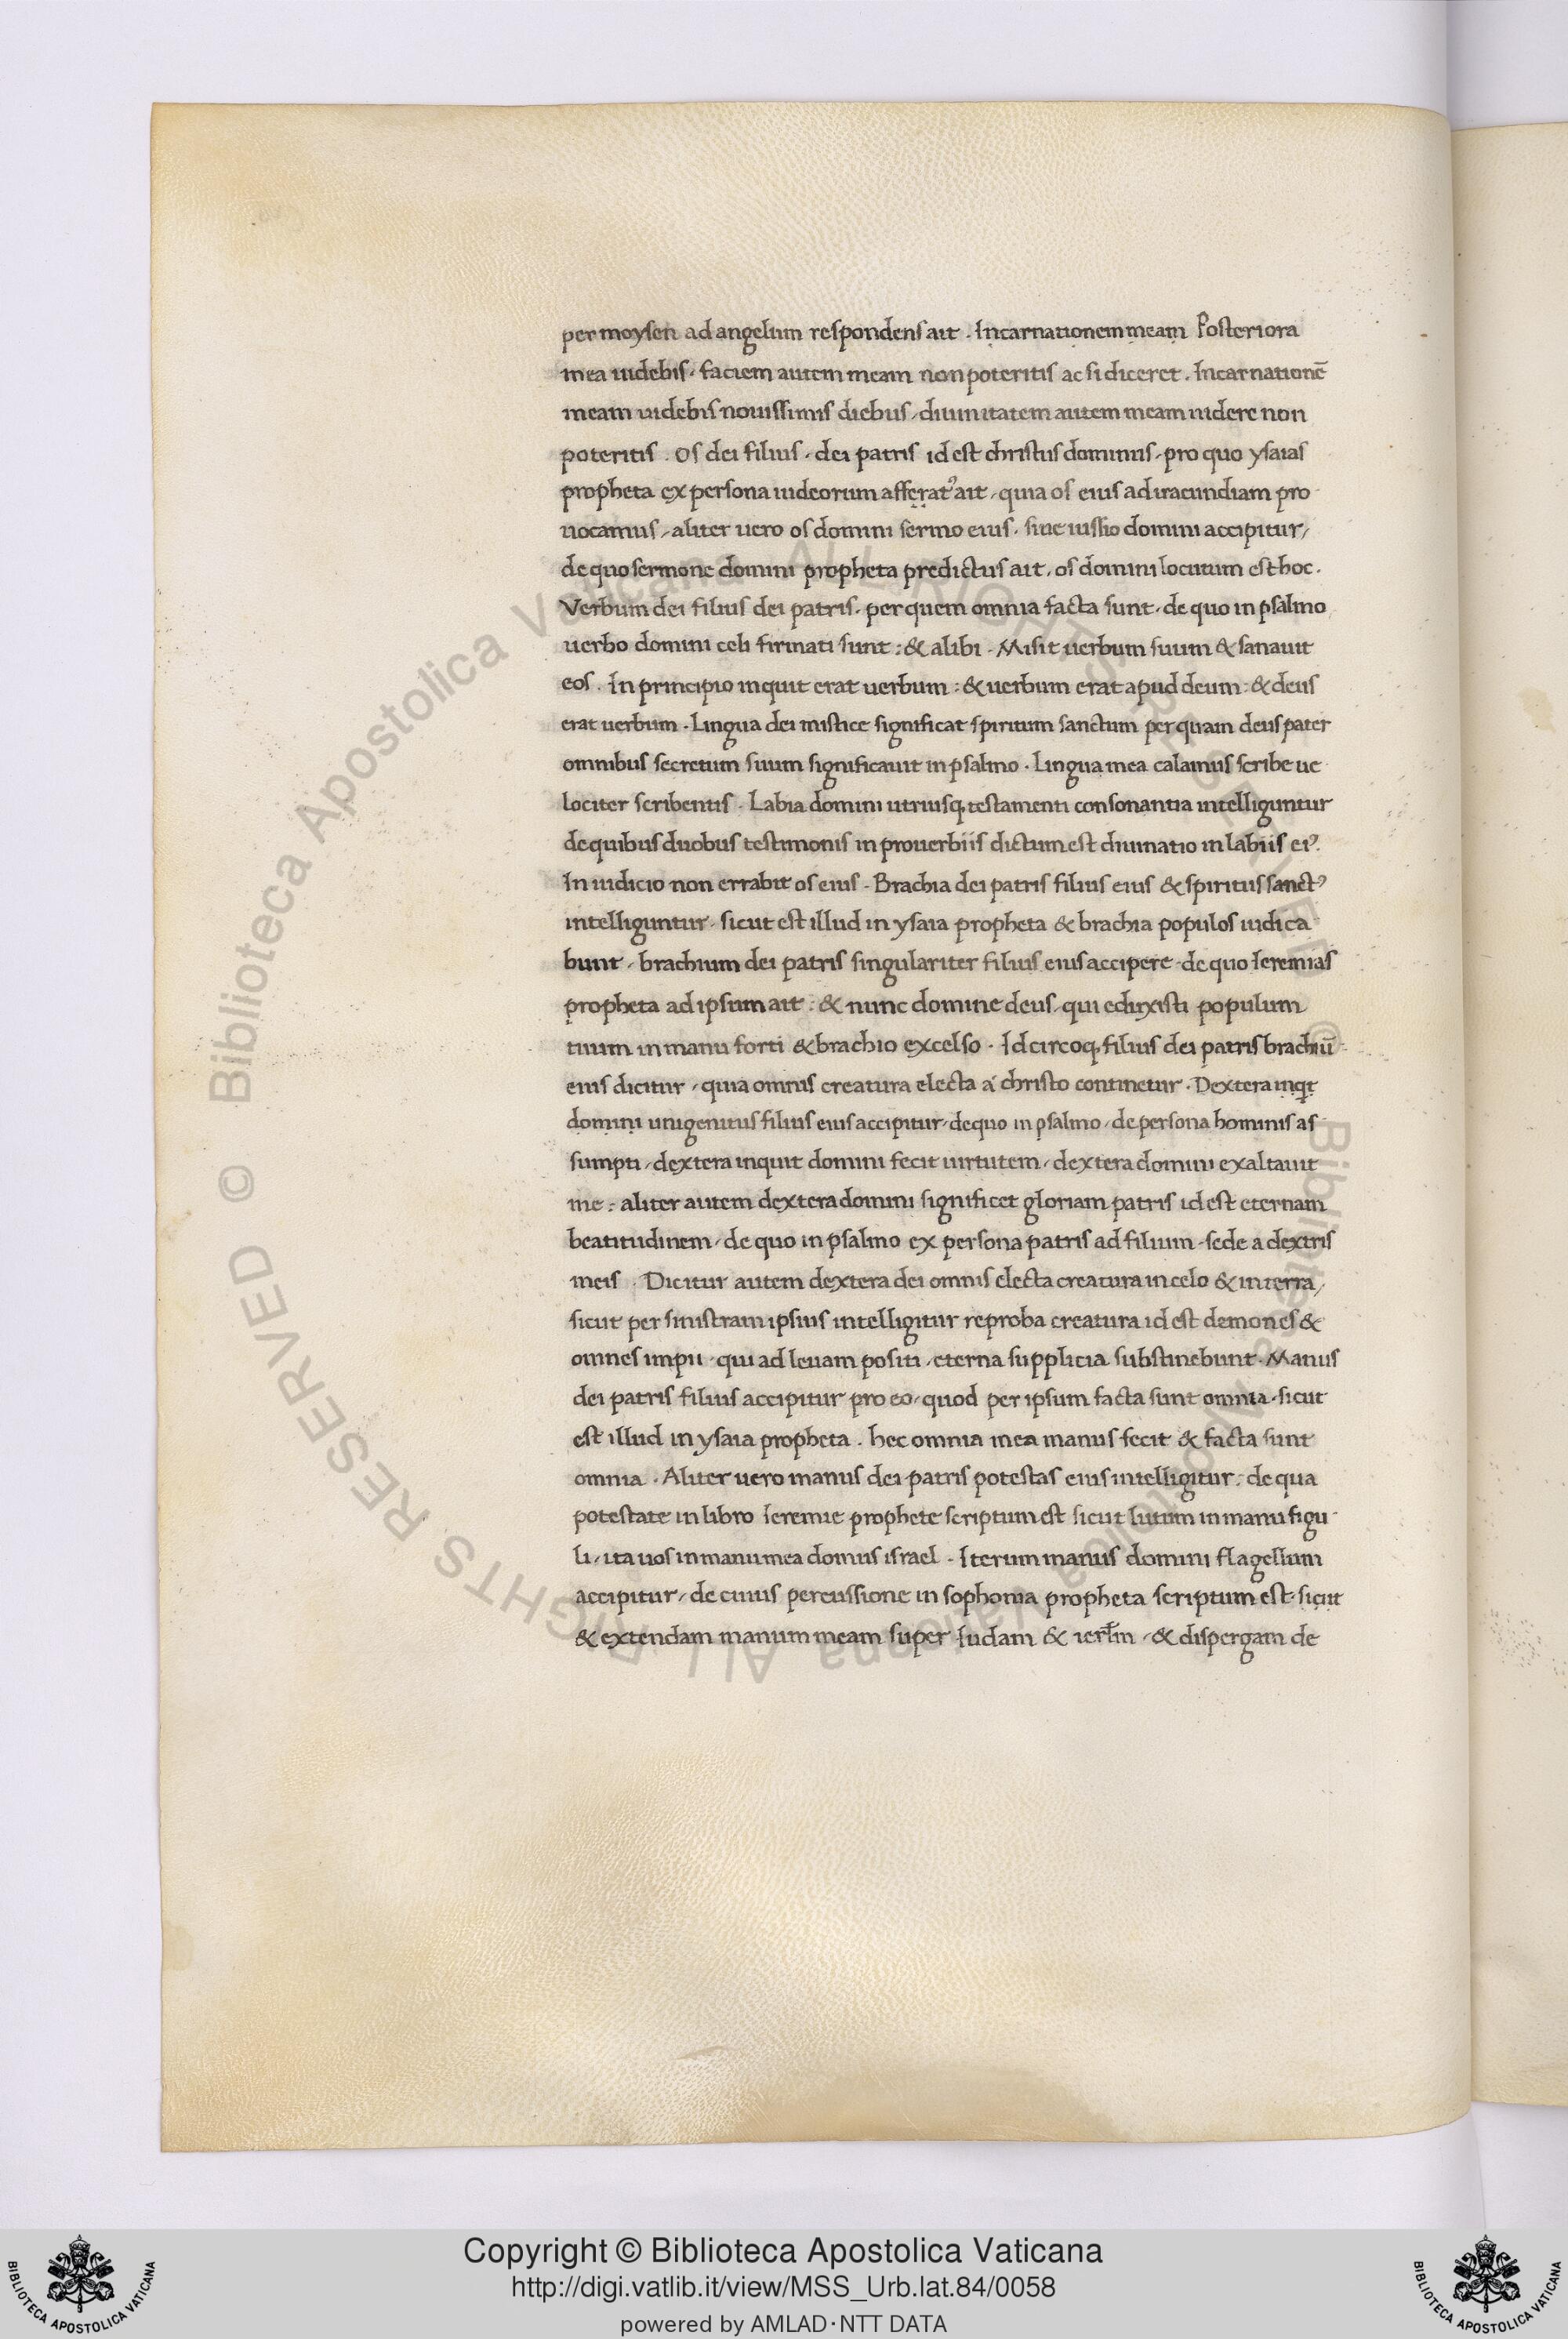 per moysen ad angelum respondens ait . Incarnationem meam Posteriora
mea uidebis . faciem autem meam non poteritis ac si diceret . Incarnationē
meam uidebis nouissimis diebus , diuinitatem autem meam uidere non
poteritis . Os dei filius . dei patris id est christus dominus , pro quo ysaias
propheta ex persona iudeorum afferat᾽ ait , quia os eius ad iracundiam pro
uocamus , aliter uero os domini sermo eius . siue iussio domini accipitur ,
de quo sermone domini propheta predictus ait , os domini locutum est hoc .
Verbum dei filius dei patris . per quem omnia facta sunt . de quo in psalmo
uerbo domini celi firmati sunt : & alibi . Misit uerbum suum & sanauit
eos . In principio inquit erat uerbum : & uerbum erat apud deum : & deus
erat uerbum . Lingua dei mistice significat spiritum sanctum per quam deus pater
omnibus secretum suum significauit in psalmo . Lingua mea calamus scribe ue
lociter scribentis . Labia domini utriusq; testamenti consonantia intelliguntur
de quibus duobus testimonis in prouerbiis dictum est diuinatio in labiis ei᾽ .
In iudicio non errabit os eius . Brachia dei patris filius eius & spiritus sanct᾽
intelliguntur , sicut est illud in ysaia propheta & brachia populos iudica
bunt , brachium dei patris singulariter filius eius accipere . de quo Ieremias
propheta ad ipsum ait : & nunc domine deus , qui eduxisti populum
tuum in manu forti & brachio excelso . Idcircoq; filius dei patris brachiū
eius dicitur , quia omnis creatura electa a christo continetur . Dextera inqt
domini unigenitus filius eius accipitur , de quo in psalmo , de persona hominis as
sumpti , dextera inquit domini fecit uirtutem , dextera domini exaltauit
me : aliter autem dextera domini significet gloriam patris id est eternam
beatitudinem , de quo in psalmo ex persona patris ad filium , sede a dextris
meis . Dicitur autem dextera dei omnis electa creatura in celo & in terra ,
sicut per sinistram ipsius intelligitur reproba creatura id est demones &
omnes impii , qui ad leuam positi , eterna supplicia substinebunt . Manus
dei patris filius accipitur pro eo , quod per ipsum facta sunt omnia . sicut
est illud in ysaia propheta . hec omnia mea manus fecit & facta sunt
omnia . Aliter uero manus dei patris potestas eius intelligitur : de qua
potestate in libro Ieremie prophete scriptum est sicut lutum in manu figu
li , ita uos in manu mea domus israel . Iterum manus domini flagellum
accipitur , de cuius percussione in sophonia propheta scriptum est . sicut
& extendam manum meam super Iudam & ierłm , & dispergam de
© Biblioteca Apostolica Vaticana ALL RIGHTS RESERVED © Biblioteca Apostolica Vaticana ALL RIGHTS RESERVED
Copyright © Biblioteca Apostolica Vaticana
http://digi.vatlib.it/view/MSS_Urb.lat.84/0058
powered by AMLAD·NTT DATA
BIBLIOTECA APOSTOLICA VATICANA
BIBLIOTECA APOSTOLICA VATICANA